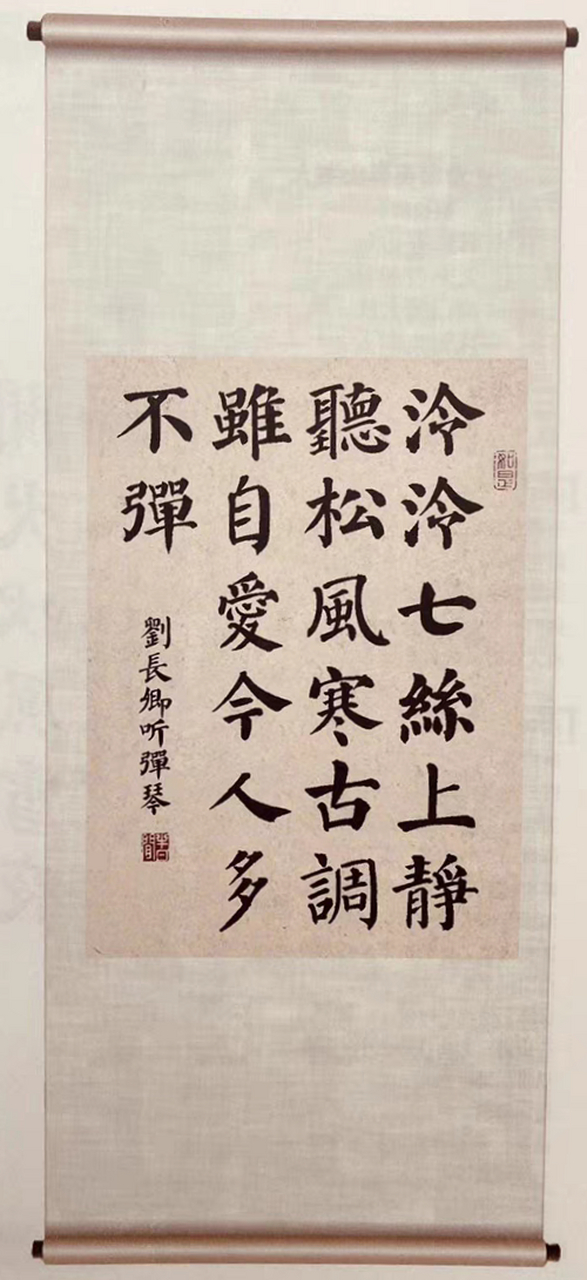 泠泠七絲上靜
聽松風寒古調
雖自愛今人多
不彈
劉長卿听彈琴
如是